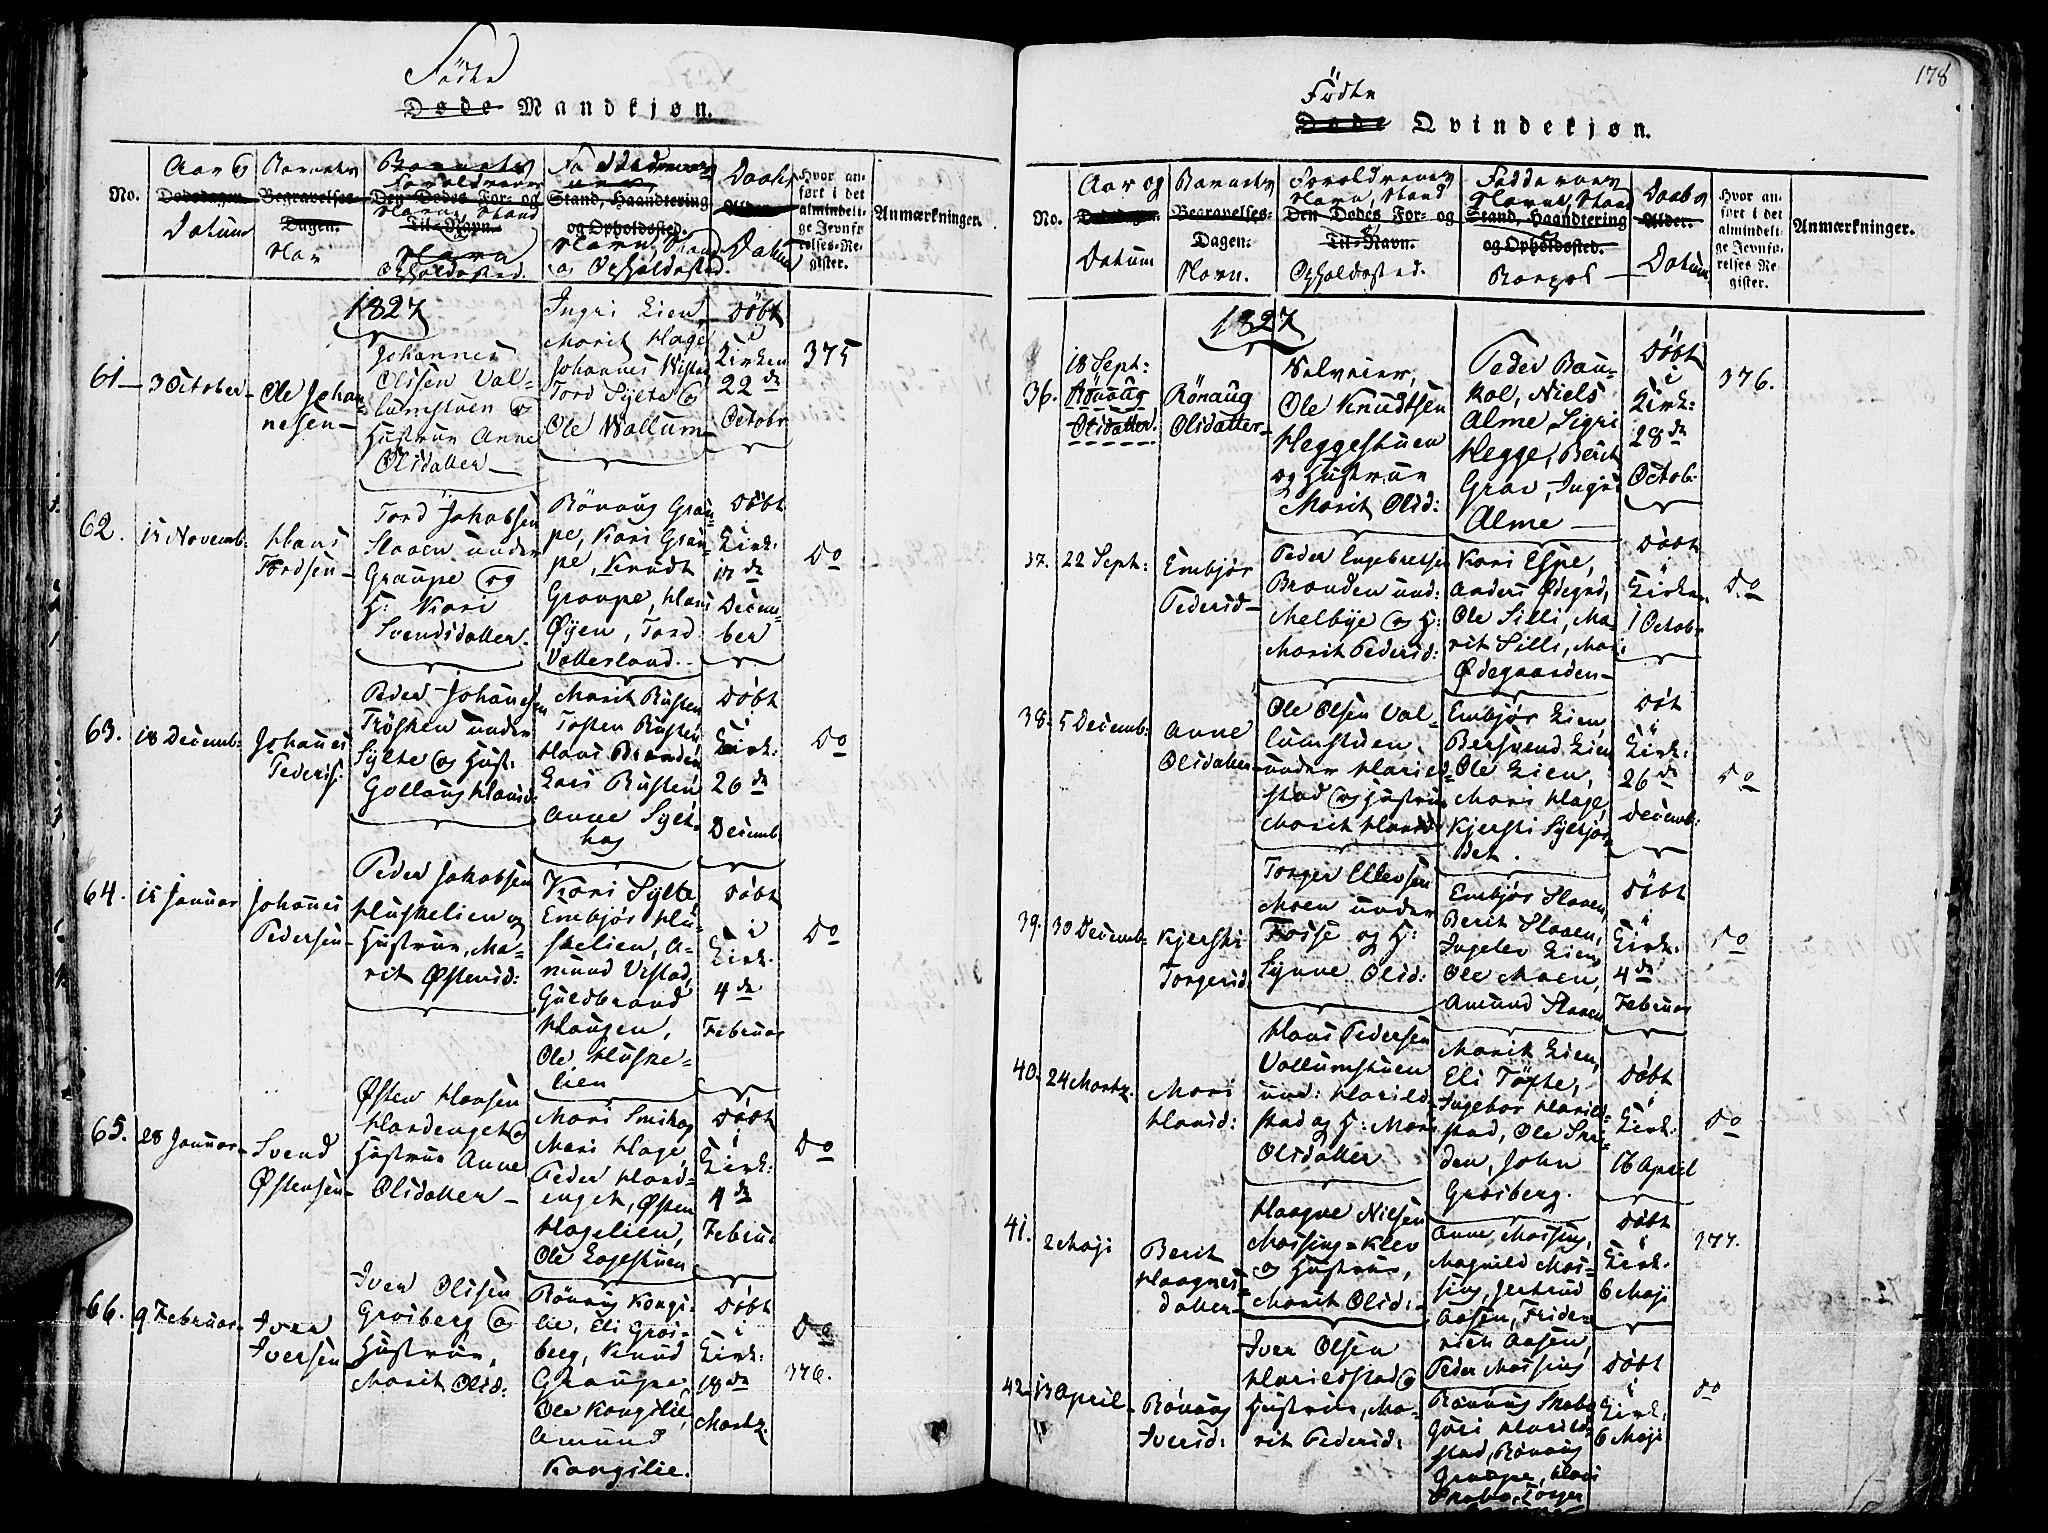 Födte
Døde Mandkjøn.
No.
Aar og
Dødsdagen.
Datum
Barnets
Begravelses-
Dagen.
Nav
Barnets
Foreldrenes
Den Dødes For- og
Navn, Stand
Til-Navn.
Navn
Opholdssted.
Stand, Haandtering
og Opholdssted.
Navn, Stand
og Opholdssted.
Daabs
Alder.
Datum
Hvor an-
ført i det
almindeli-
ge Jevnfø-
relses-Re-
gister.
Anmærkninger.
1827
61 — 3 October —
Ole Johan-
nesen —
Johannes
Olsen Val-
lumstuen og
Hustrue Anne
Olsdatter —
Ingri Lien,
Marit Hage,
Johannes Vistad
Tord Sylte og
Ole Vallum —
Döbt
i
Kirken
22 de
Octobr
375
62. 15 Novemb:
Hans
Tordsen —
Tord Jakobsen
Slaaen under
Graupe og
H: Kari
Svendsdatter.
Rönaug Grau-
pe, Kari Grau-
pe, Knudt
Graupe, Hans
Øyen, Tord
Valterland. —
Döbt
i
Kirk:
17 de
Decem-
ber
Do
63. 18 Decemb:
Johanes
Peders:
Peder Johanesen
Trösken under
Sylte og Hust:
Gollaug Hansd:
Marit Rusten
Tosten Rusten,
Hans Branden
Lars Rusten,
Anne Sylt-
hag
Döbt
i
Kirk:
26 de
Decemb
Do
64. 15 Januar
Johanes
Pedersen —
Peder Jakobsen
Huskelien og
Hustrue, Ma-
rit Østensd:
Kari Sylte
Embjör Hu-
skelien, A-
mund Vistad,
Guldbrand
Haugen,
Ole Huske-
lien
Döbt
i
Kirk.
4 de
Februar
Do
65. 28 Januar —
Svend
Østensen —
Østen Hansen
Hardenget og
Hustrue Anne
Olsdatter —
Mari Smihag
Mari Hage,
Peder Hard-
enget, Østen
Hagelien,
Ole Lagestuen
Döbt
i
Kirk:
4 de
Februar
Do
66. 9 Februar —
Iver
Iversen —
Iver Olsen
Groiberg og
Hustrue,
Marit Olsd:
Rönaug Kongs-
lie, Eli Groi-
berg, Knud
Graupe,
Ole Kongslie,
Amund
Kongslie.
Döbt
i
Kirk:
18 de
Martz.
Do
376.
178
Födte
Døde Qvindekjøn.
No.
Aar og
Dødsdagen.
Datum
Barnets
Begravelses-
Dagen.
Navn.
Foreldrenes
Navn, Stand
Den Dødes For- og
Til-Navn.
Opholdssted.
Faddernes
Navn, Stand
Stand, Haandtering
og Opholdssted.
Daabs
Alder.
Datum
Hvor an-
ført i det
almindeli-
ge Jevnfø-
relses Re-
gister.
Anmærkninger.
1827
36.
18 Sept:
Rönaug
Olsdatter.
Rönaug
Olsdatter —
Selveier,
Ole Knudtsen
Heggestuen
og Hustrue
Marit Olsd:
Peder Bau-
kol, Niels
Alme, Sigri
Hegge, Berit
Grav, Ingri
Alme —
Döbt
i
Kirk:
28 de
Octob:
376.
37. 22 Sept:
Embjör
Pedersd —
Peder Engebretsen
Branden und:
Melbye og H:
Marit Pedersd:
Kari Espe,
Anders Ødegrd,
Ole Silli, Ma-
rit Silli, Mari
Ødegaarden —
Döbt
i
Kirken
1 Octobr
Do
38. 5 Decemb:
Anne
Olsdatter —
Ole Olsen Val-
lumstuen
under Harild-
stad og Hustrue
Marit Haralds:
Embjör Lien,
Bersvend Lien
Ole Lien,
Mari Hage,
Kjersti Syltjor-
det.
Döbt
i
Kirk:
26 de
Decemb:
Do
39. 30 Decemb:
Kjersti
Torgersd:
Torger Ellevsen
Moen under
Fosse og H:
Synne Olsd:
Embjör Slaaen,
Berit Slaaen,
Ingelev Lien,
Ole Moen,
Amund Slaaen
Döbt
i
Kirk:
4 de
Februar
Do
40. 24 Martz.
Mari
Hansd:
Hans Pedersen
Vallumstuen
und: Harild-
stad og H: Mari
Olsdatter
Marit Lien,
Eli Tofte,
Ingebor Harild-
stad, Ole Ski-
den, John
Groiberg.
Döbt
i
Kirk:
16 April
Do
41.
2 Maji
Berit
Haagens-
datter —
Haagne Nilsen
Massing = Klev
og Hustrue,
Marit Olsd: —
Anne Massing,
Magnild Mas-
sing, Jertrud
Aasen, Fride-
rich Aasen,
Peder Massing
Döbt
i
Kirk.
6 Maji
377.
42 — 13 April —
Rönaug
Iversd:
Iver Olsen
Harildstad og
Hustrue, Ma-
rit Pedersd:
Rönaug Skabo
Guri Harild-
stad, Rönaug
Graupe, Hans
Skabo, Torger
Döbt
i
Kirk.
6 Maji
Do